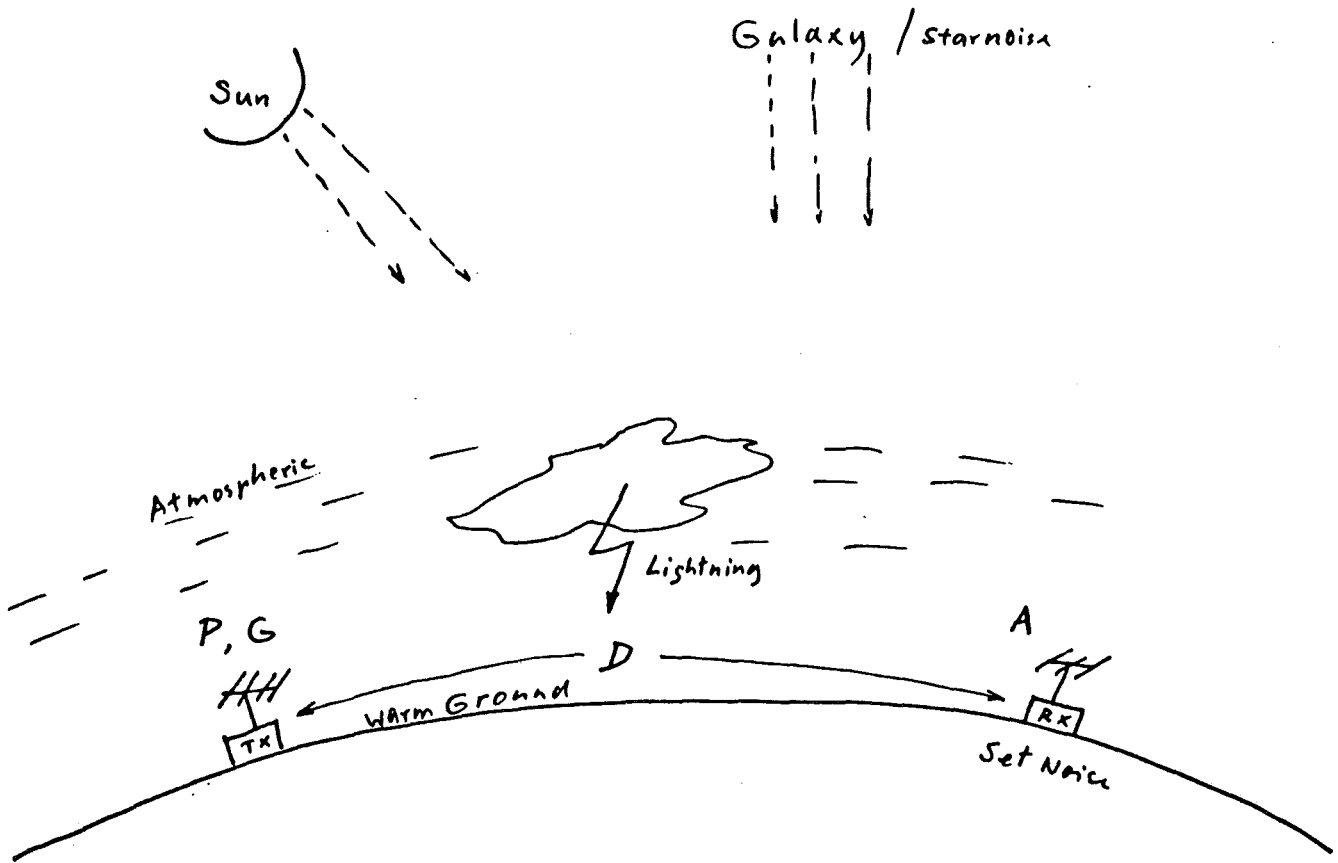 Galaxy / starnoise
Sun
Atmospheric
Lightning
P, G
A
D
Warm Ground
TX
RX
Set Noice